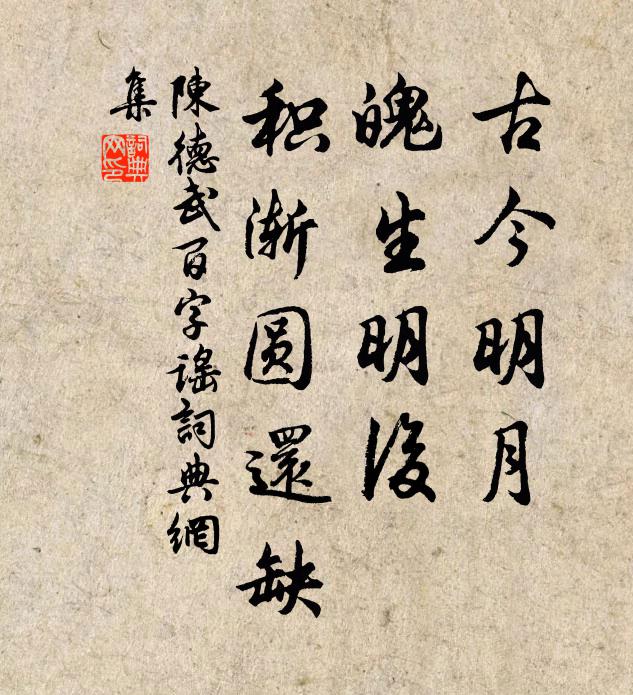 古今明月
魄生明後
积漸圆還缺
陳德武百字謠詞典網
集
詞典
网印